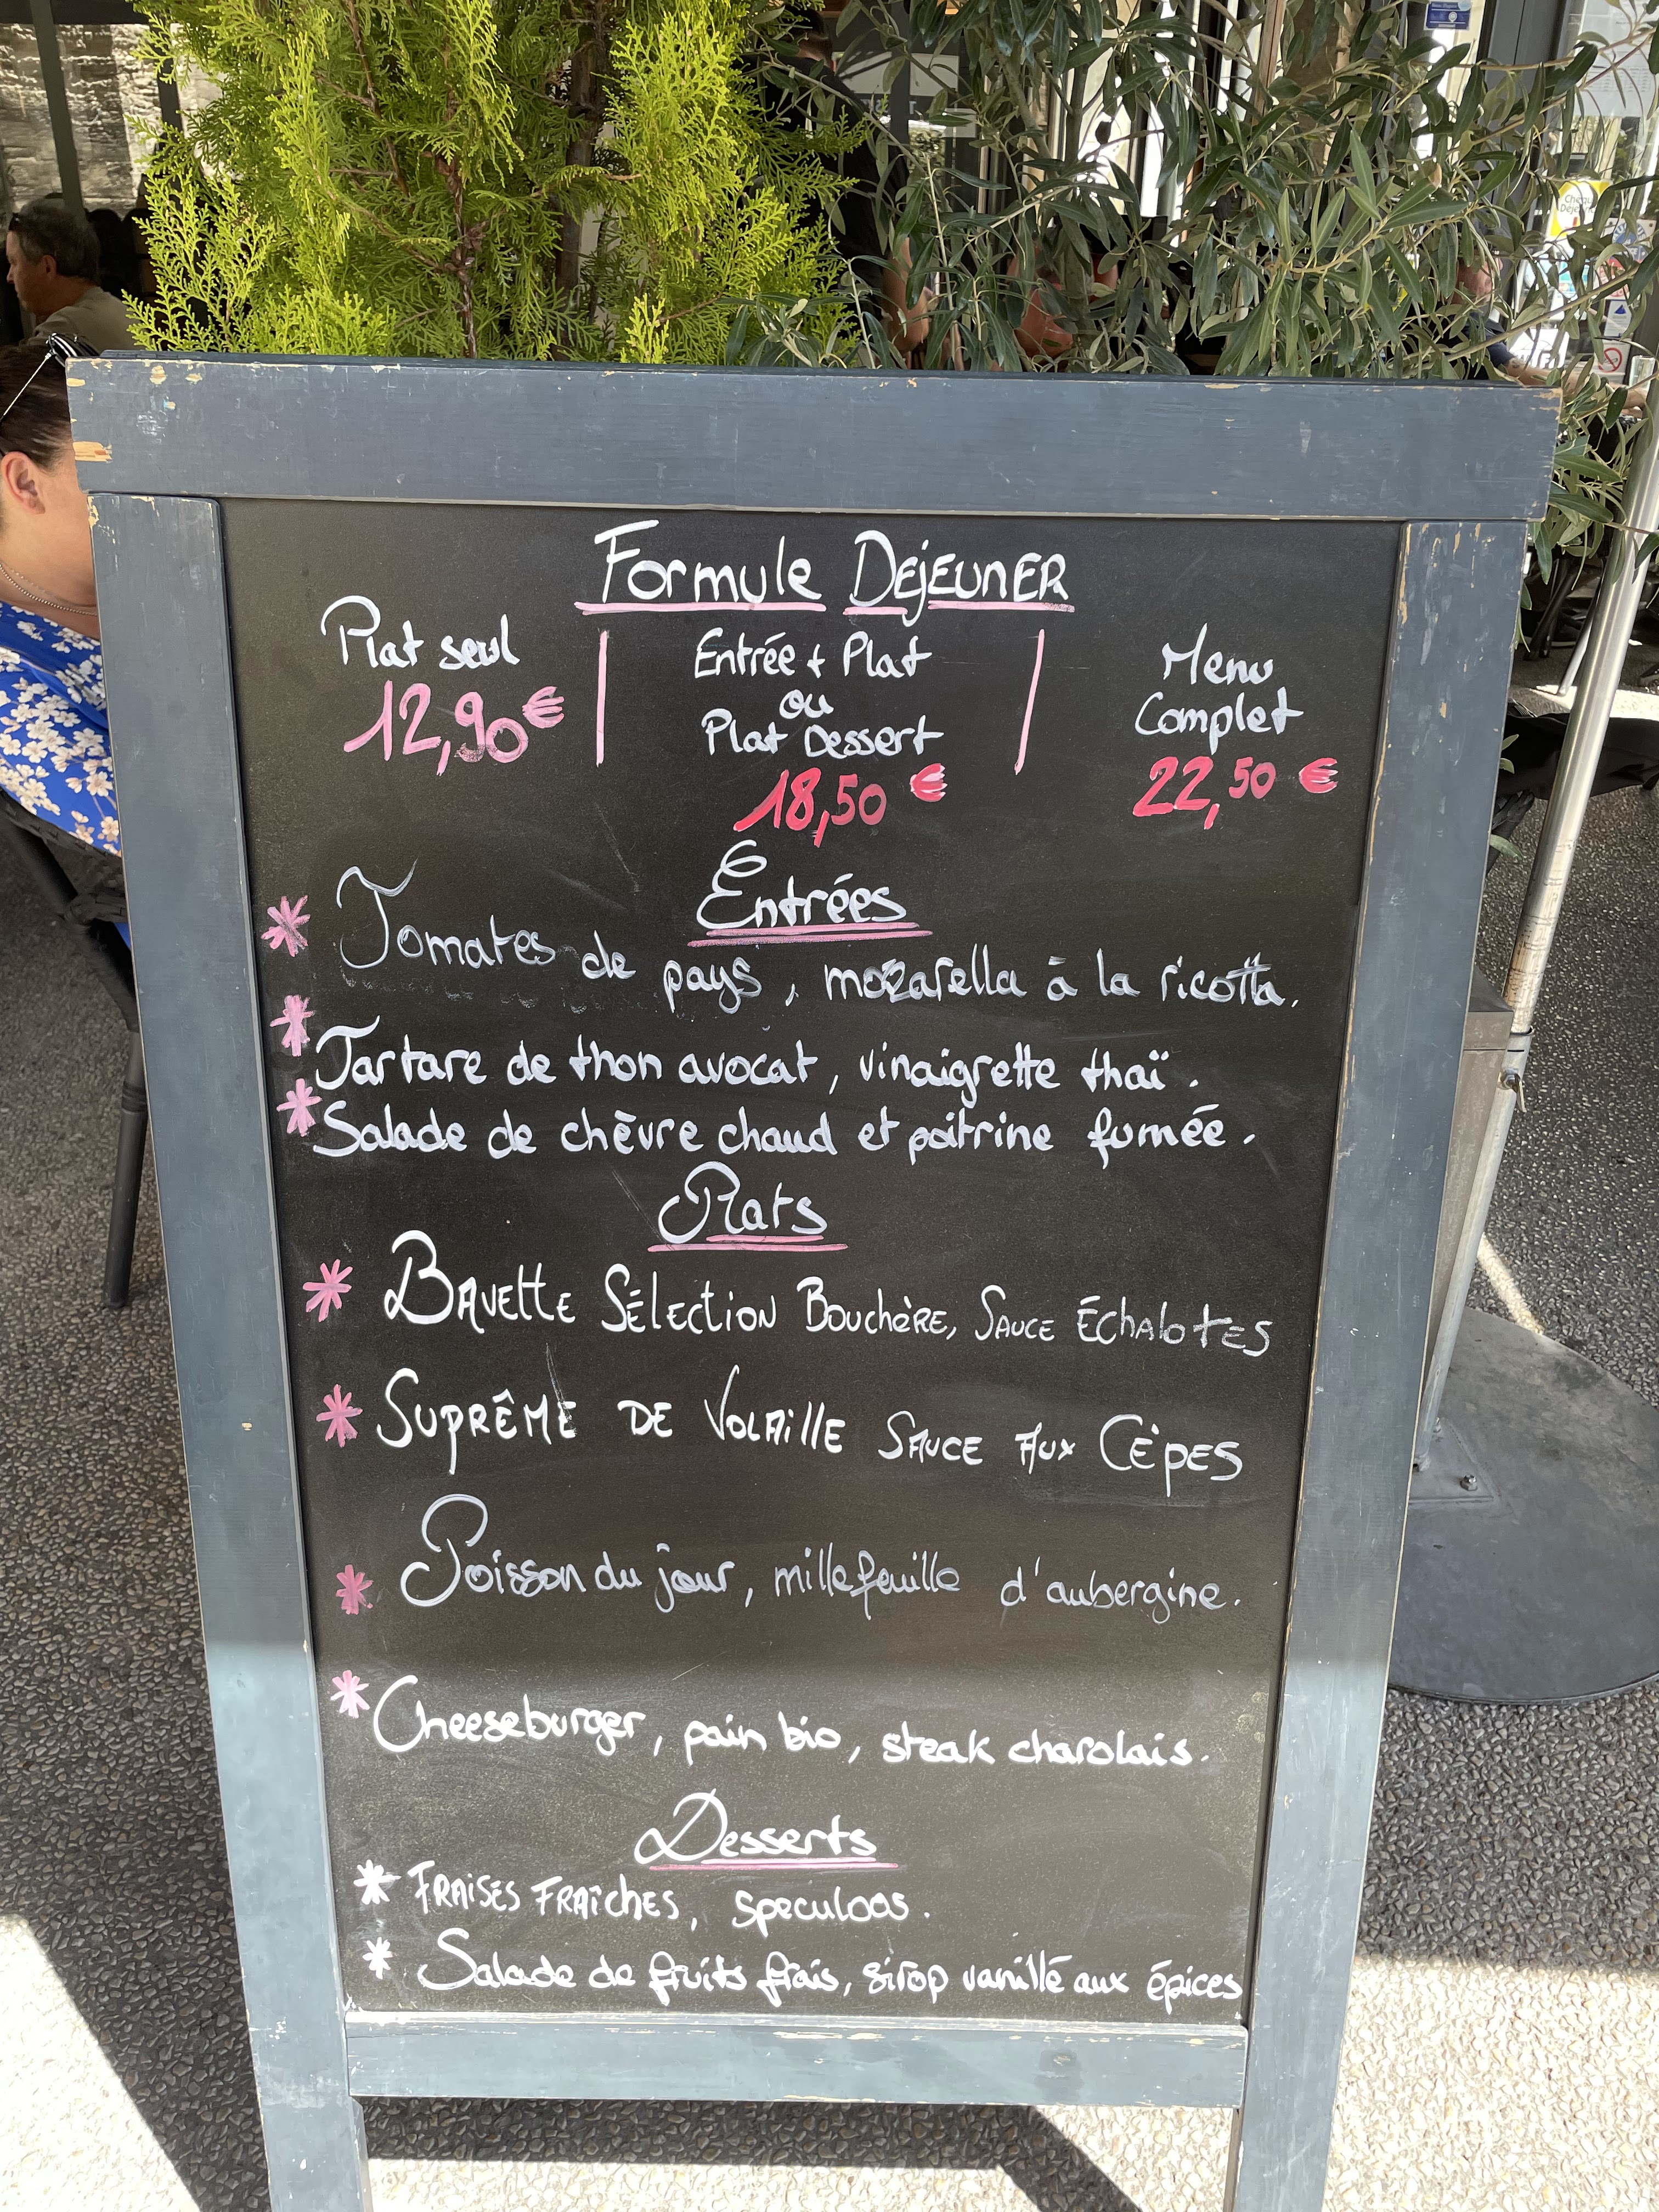 Formule DéJEUNER
Plat seul
12,90€
Entrée + Plat
ou
Plat Dessert
18,50 €
Menu
Complet
22,50 €
Entrées
* Tomates de pays, mozarella à la ricotta.
* Tartare de thon avocat, vinaigrette thaï.
* Salade de chèvre chaud et poitrine fumée.
Plats
* BAVETTE SÉLECTION BOUCHÈRE, SAUCE ÉCHALOTES
* SUPRÊME DE VOLAILLE SAUCE AUX CÈPES
* Poisson du jour, millefeuille d'aubergine.
* Cheeseburger, pain bio, steak charolais.
Desserts
* FRAISES FRAÎCHES, speculoos.
* Salade de fruits frais, sirop vanillé aux épices